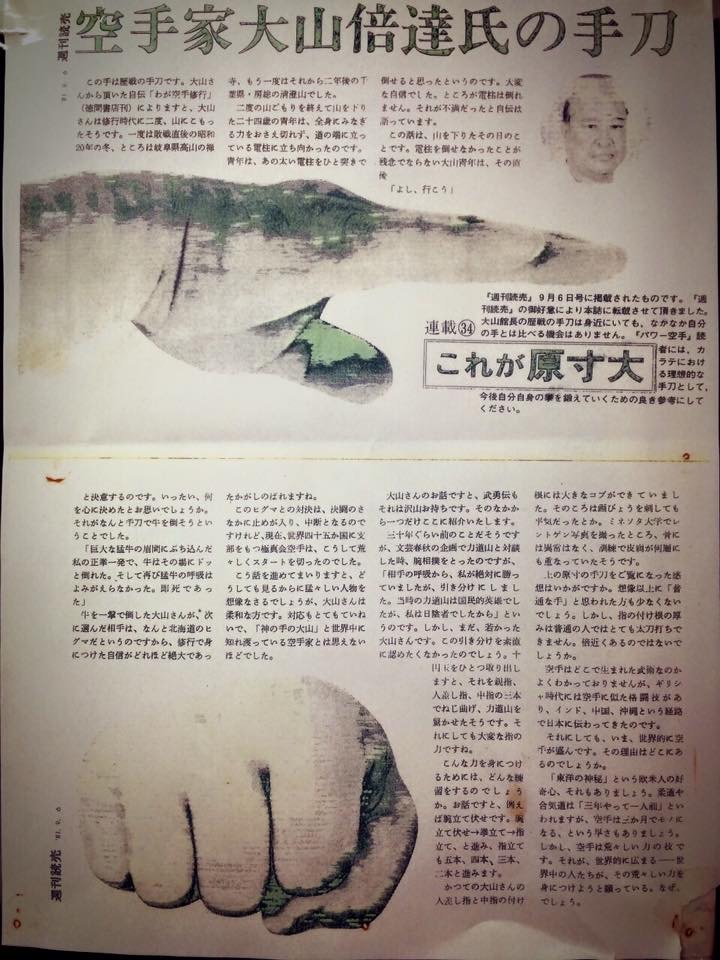 週刊読売 '81. 9. 6
空手家大山倍達氏の手刀
この手は歴戦の手刀です。大山さ
んから頂いた自伝「わが空手修行」
(徳間書店刊)によりますと、大山
さんは修行時代に二度、山にこもっ
たそうです。一度は敗戦直後の昭和
20年の冬、ところは岐阜県高山の禅
寺、もう一度はそれから二年後の千
葉県・房総の清澄山でした。
二度の山ごもりを終えて山を下り
た二十四歳の青年は、全身にみなぎ
る力をおさえ切れず、道の端に立っ
ている電柱に立ち向かったのです。
青年は、あの太い電柱をひと突きで
倒せると思ったというのです。大変
な自信でした。ところが電柱は倒れ
ません。それが不満だったと自伝は
語っています。
この話は、山を下りたその日のこ
とです。電柱を倒せなかったことが
残念でならない大山青年は、その直
後
「よし、行こう」
『週刊読売』9月6日号に掲載されたものです。『週
刊読売』の御好意により本誌に転載させて頂きました。
大山館長の歴戦の手刀は身近にいても、なかなか自分
の手とは比べる機会はありません。『パワー空手』読
者には、カ
ラテにおけ
る理想的な
手刀として、
今後自分自身の拳を鍛えていくための良き参考にして
ください。
連載㉞
これが原寸大
と決意するのです。いったい、何
を心に決めたとお思いでしょうか。
それがなんと手刀で牛を倒そうとい
うことでした。
「巨大な猛牛の眉間にぶち込んだ
私の正拳一発で、牛はその場にドッ
と倒れた。そして再び猛牛の呼吸は
よみがえらなかった。即死であっ
た」
牛を一撃で倒した大山さんが、次
に選んだ相手は、なんと北海道のヒ
グマだというのですから、修行で身
につけた自信がどれほど絶大であっ
たかがしのばれますね。
このヒグマとの対決は、決闘のさ
なかに止めが入り、中断となるので
すけれど、現在、世界四十五か国に支
部をもつ極真会空手は、こうして荒々
しくスタートを切ったのでした。
こう話を進めてまいりますと、ど
うしても見るからに猛々しい人物を
想像なさるでしょうが、大山さんは
柔和な方です。対応もとてもていね
いで、「神の手の大山」と世界中に
知れ渡っている空手家とは思えない
ほどでした。
大山さんのお話ですと、武勇伝も
それは沢山お持ちです。そのなかか
ら一つだけここに紹介いたします。
三十年ぐらい前のことだそうです
が、文芸春秋の企画で力道山と対談
した時、腕相撲をとったのですが、
「相手の呼吸から、私が絶対に勝っ
ていましたが、引き分けにしまし
た。当時の力道山は国民的英雄でし
たが、私は日陰者でしたから」とい
うのです。しかし、まだ、若かった
大山さんです。この引き分けを素直
に認めたくなかったのでしょう。十
円玉をひとつ取り出し
ますと、それを親指、
人差し指、中指の三本
でねじ曲げ、力道山を
驚かせたそうです。そ
れにしても大変な指の
力ですね。
こんな力を身につけ
るためには、どんな練
習をするのでしょう
か。お話ですと、例え
ば腕立て伏せです。腕
立て伏せ→拳立て→指
立て、と進み、指立て
も五本、四本、三本、
二本と進みます。
かつての大山さんの
人差し指と中指の付け
根には大きなコブができていまし
た。そのころは画びょうを刺しても
平気だったとか。ミネソタ大学でレ
ントゲン写真を撮ったところ、骨に
は異常はなく、訓練で皮膚が何層に
も重なっていたそうです。
上の原寸の手刀をご覧になった感
想はいかがですか。想像以上に「普
通な手」と思われた方も少なくない
でしょう。しかし、指の付け根の厚
みは普通の人ではとても太刀打ちで
きません。倍近くあるのではないで
しょうか。
空手はどこで生まれた武術なのか
よくわかっておりませんが、ギリシ
ャ時代には空手に似た格闘技があ
り、インド、中国、沖縄という経路
で日本に伝わってきたのです。
それにしても、いま、世界的に空
手が盛んです。その理由はどこにあ
るのでしょうか。
「東洋の神秘」という欧米人の好
奇心、それもありましょう。柔道や
合気道は「三年やって一人前」とい
われますが、空手は三か月でモノに
なる、という早さもありましょう。
しかし、空手は荒々しい力の技で
す。それが、世界的に広まる——世
界中の人たちが、その荒々しい力を
身につけようと願っている。なぜ、
でしょう。
週刊読売 '81. 9. 6